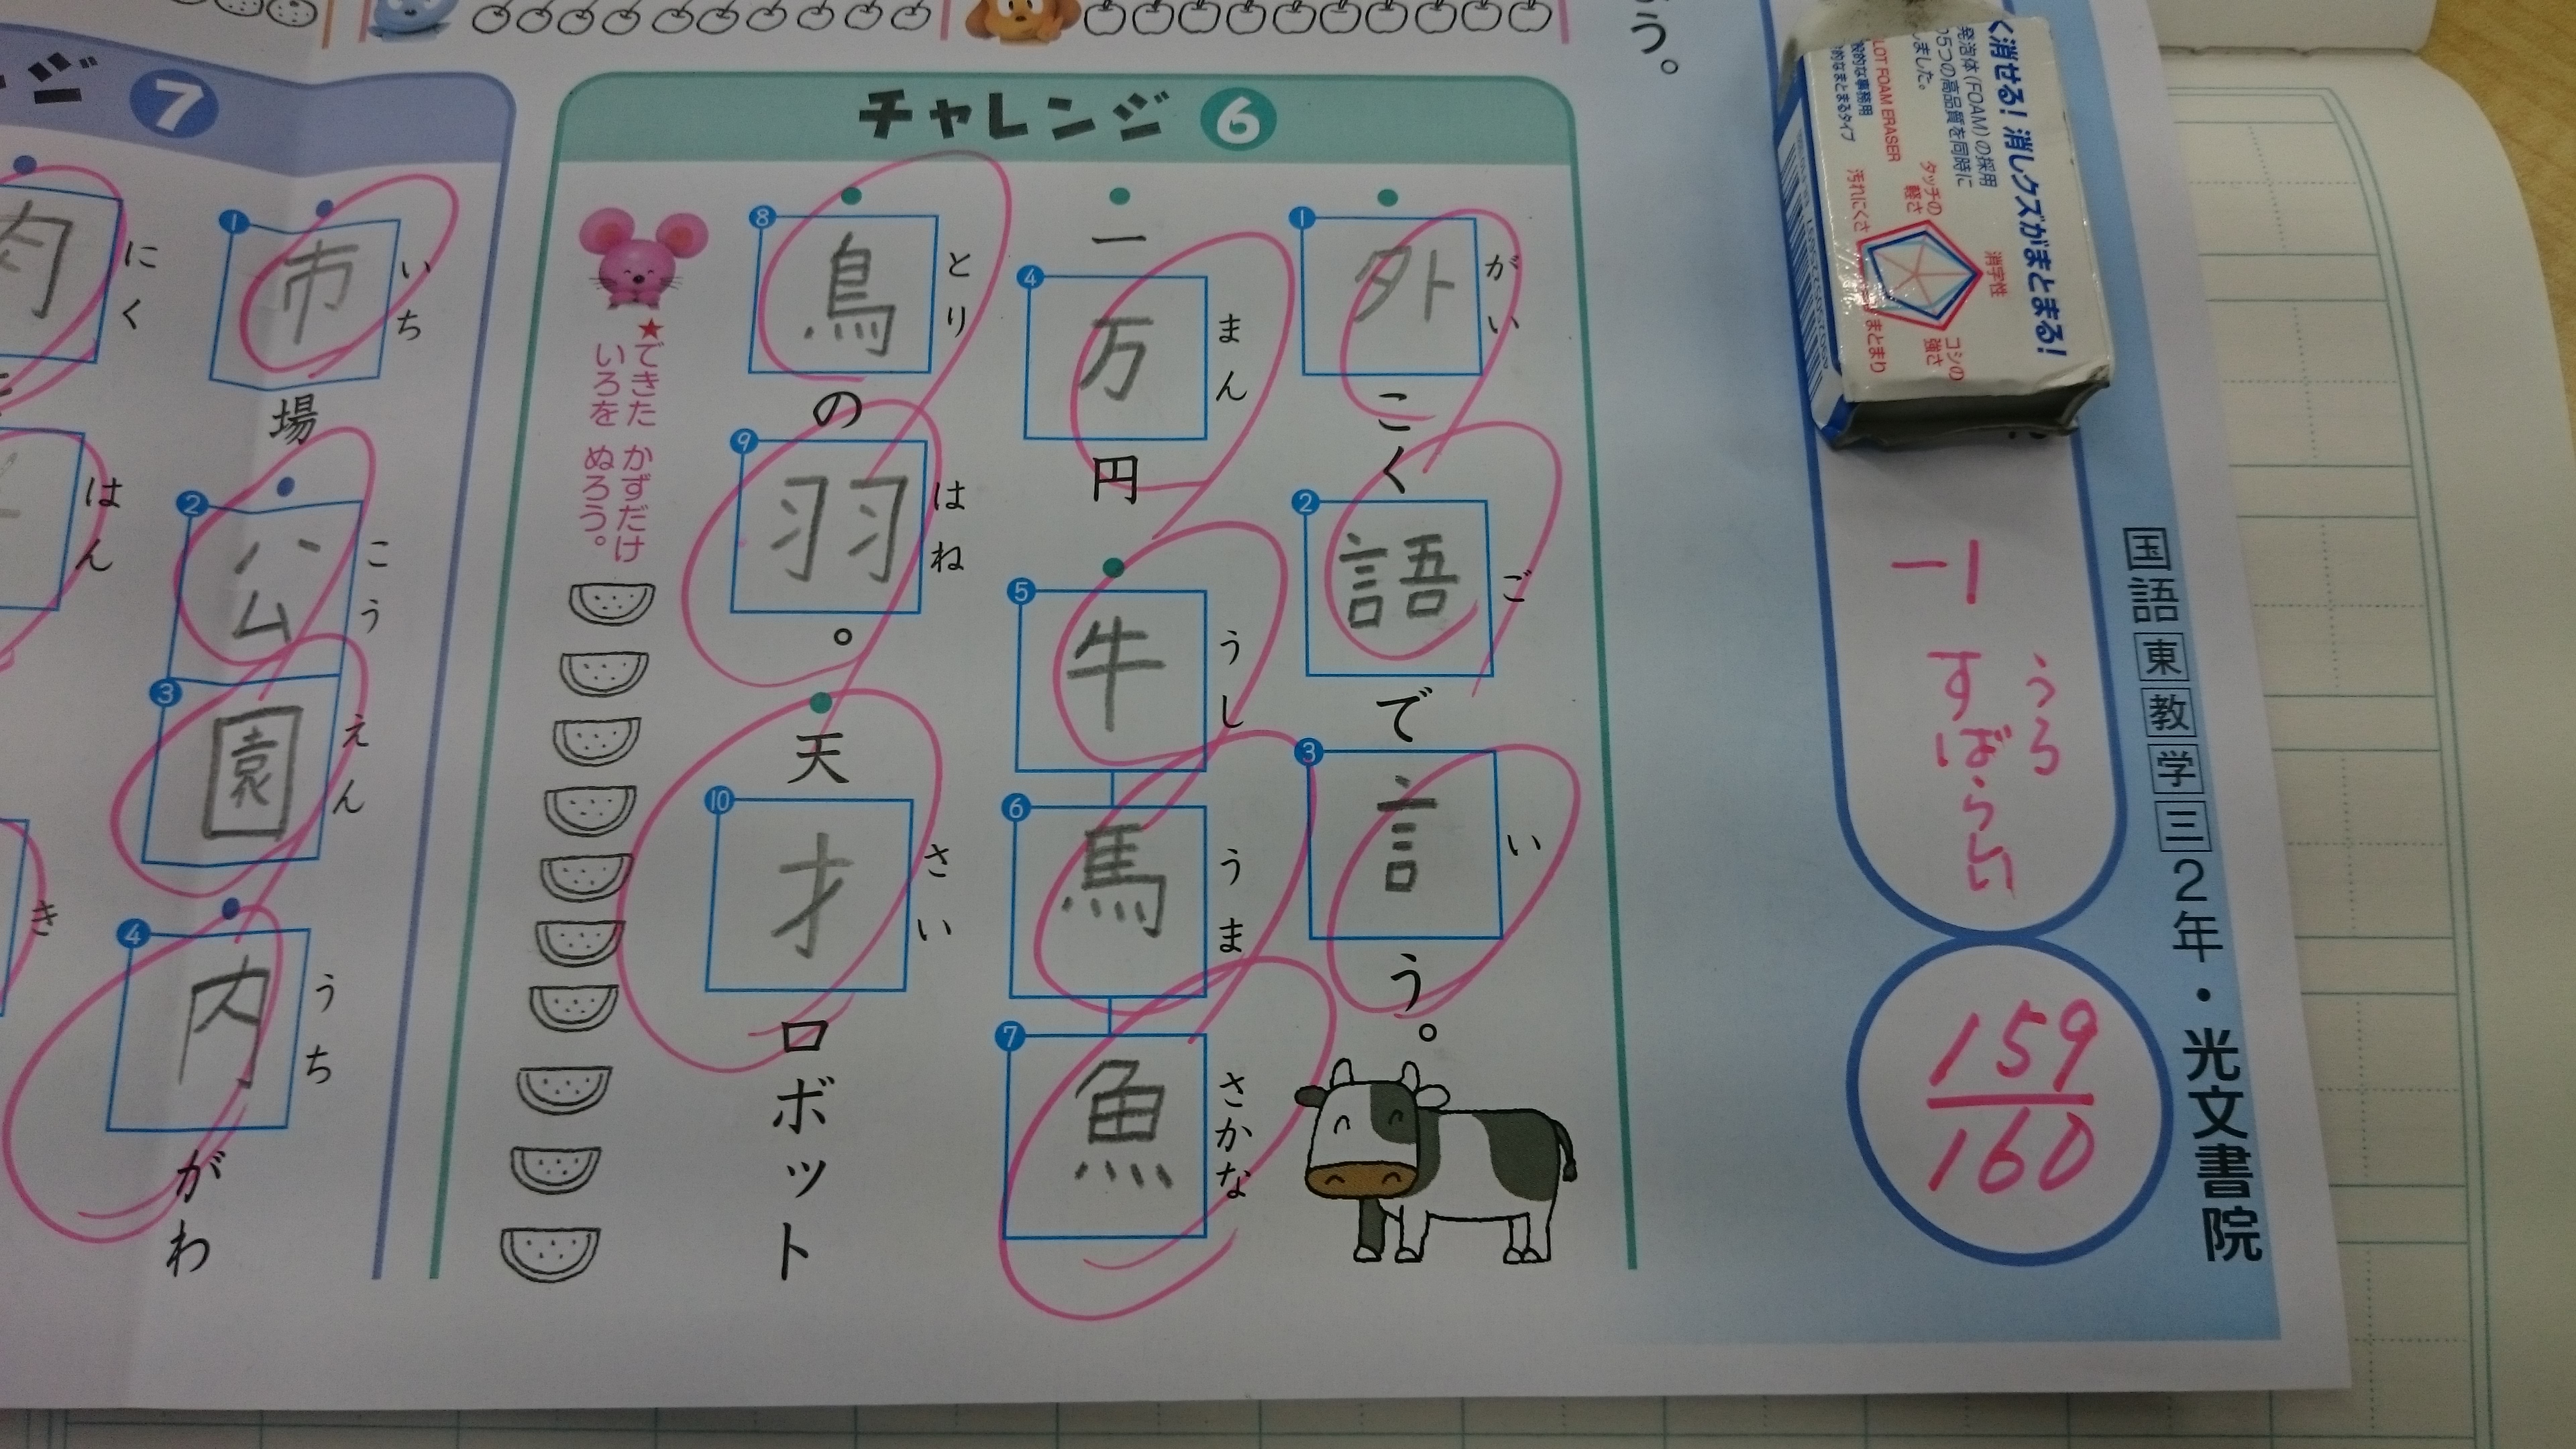 う。
く消せる!消しクズがまとまる!
発泡体(FOAM)の採用
5つの高品質を同時に
ました。
FOAM ERASER
的な事務用
的なまとまるタイプ
消字性
タッチの
軽さ
コシの
強さ
汚れにくさ
まとまり
うら
-1
すばらしい
159
160
国語東教学三2年・光文書院
チャレンジ6
1
外こく
がい
2
語で
ご
3
言う。
い
一
4
万円
まん
5
牛
うし
6
馬
うま
7
魚
さかな
8
鳥の
とり
9
羽。
はね
天
10
才ロボット
さい
★できた かずだけ
いろを ぬろう。
ンジ7
1
市場
いち
2
公
こう
3
園
えん
4
内がわ
うち
肉
にく
はん
き